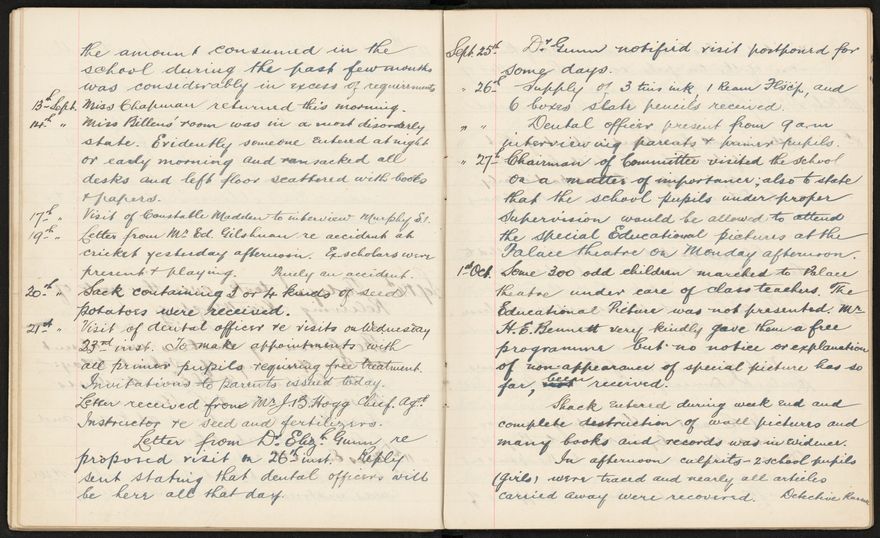 the amount consumed in the
school during the past few months
was considerably in excess of requirements
13th Sept. Miss Chapman returned this morning.
14th " Miss Bittens' room was in a most disorderly
state. Evidently someone entered at night
or early morning and ransacked all
desks and left floor scattered with books
& papers.
17th " Visit of Constable Madden to interview Murphy
19th " Letter from Mr Ed. Gilshnan re accident at
cricket yesterday afternoon. Ex scholars were
present & playing. Purely an accident.
20th " Sack containing 3 or 4 kinds of seed
potatoes were received.
21st " Visit of dental officer re visits on Wednesday
23rd inst. To make appointments with
all primer pupils requiring free treatment.
Invitations to parents issued today.
Letter received from Mr J. B. Hogg Chief. Agtl
Instructor re seed and fertilizers.
Letter from Dr. Elizh Gunn re
proposed visit on 26th inst. Reply
sent stating that dental officers will
be here all that day.
Sept. 25th Dr Gunn notified visit postponed for
some days.
" 26th Supply of 3 tins ink, 1 Ream Flscp, and
6 boxes slate pencils received.
" " Dental officer present from 9 a.m
interviewing parents & primer pupils.
" 27th Chairman of Committee visited the school
on a matter of importance; also to state
that the school pupils under proper
supervision would be allowed to attend
the special Educational pictures at the
Palace theatre on Monday afternoon.
1st Oct. Some 300 odd children marched to Palace
theatre under care of class teachers. The
Educational Picture was not presented. Mr
H. E. Bennett very kindly gave them a free
programme but no notice or explanation
of non-appearance of special picture has so
far, been received.
Shack entered during week end and
complete destruction of wall pictures and
many books and records was in evidence.
In afternoon culprits - 2 school pupils
(girls) were traced and nearly all articles
carried away were recovered. Detective